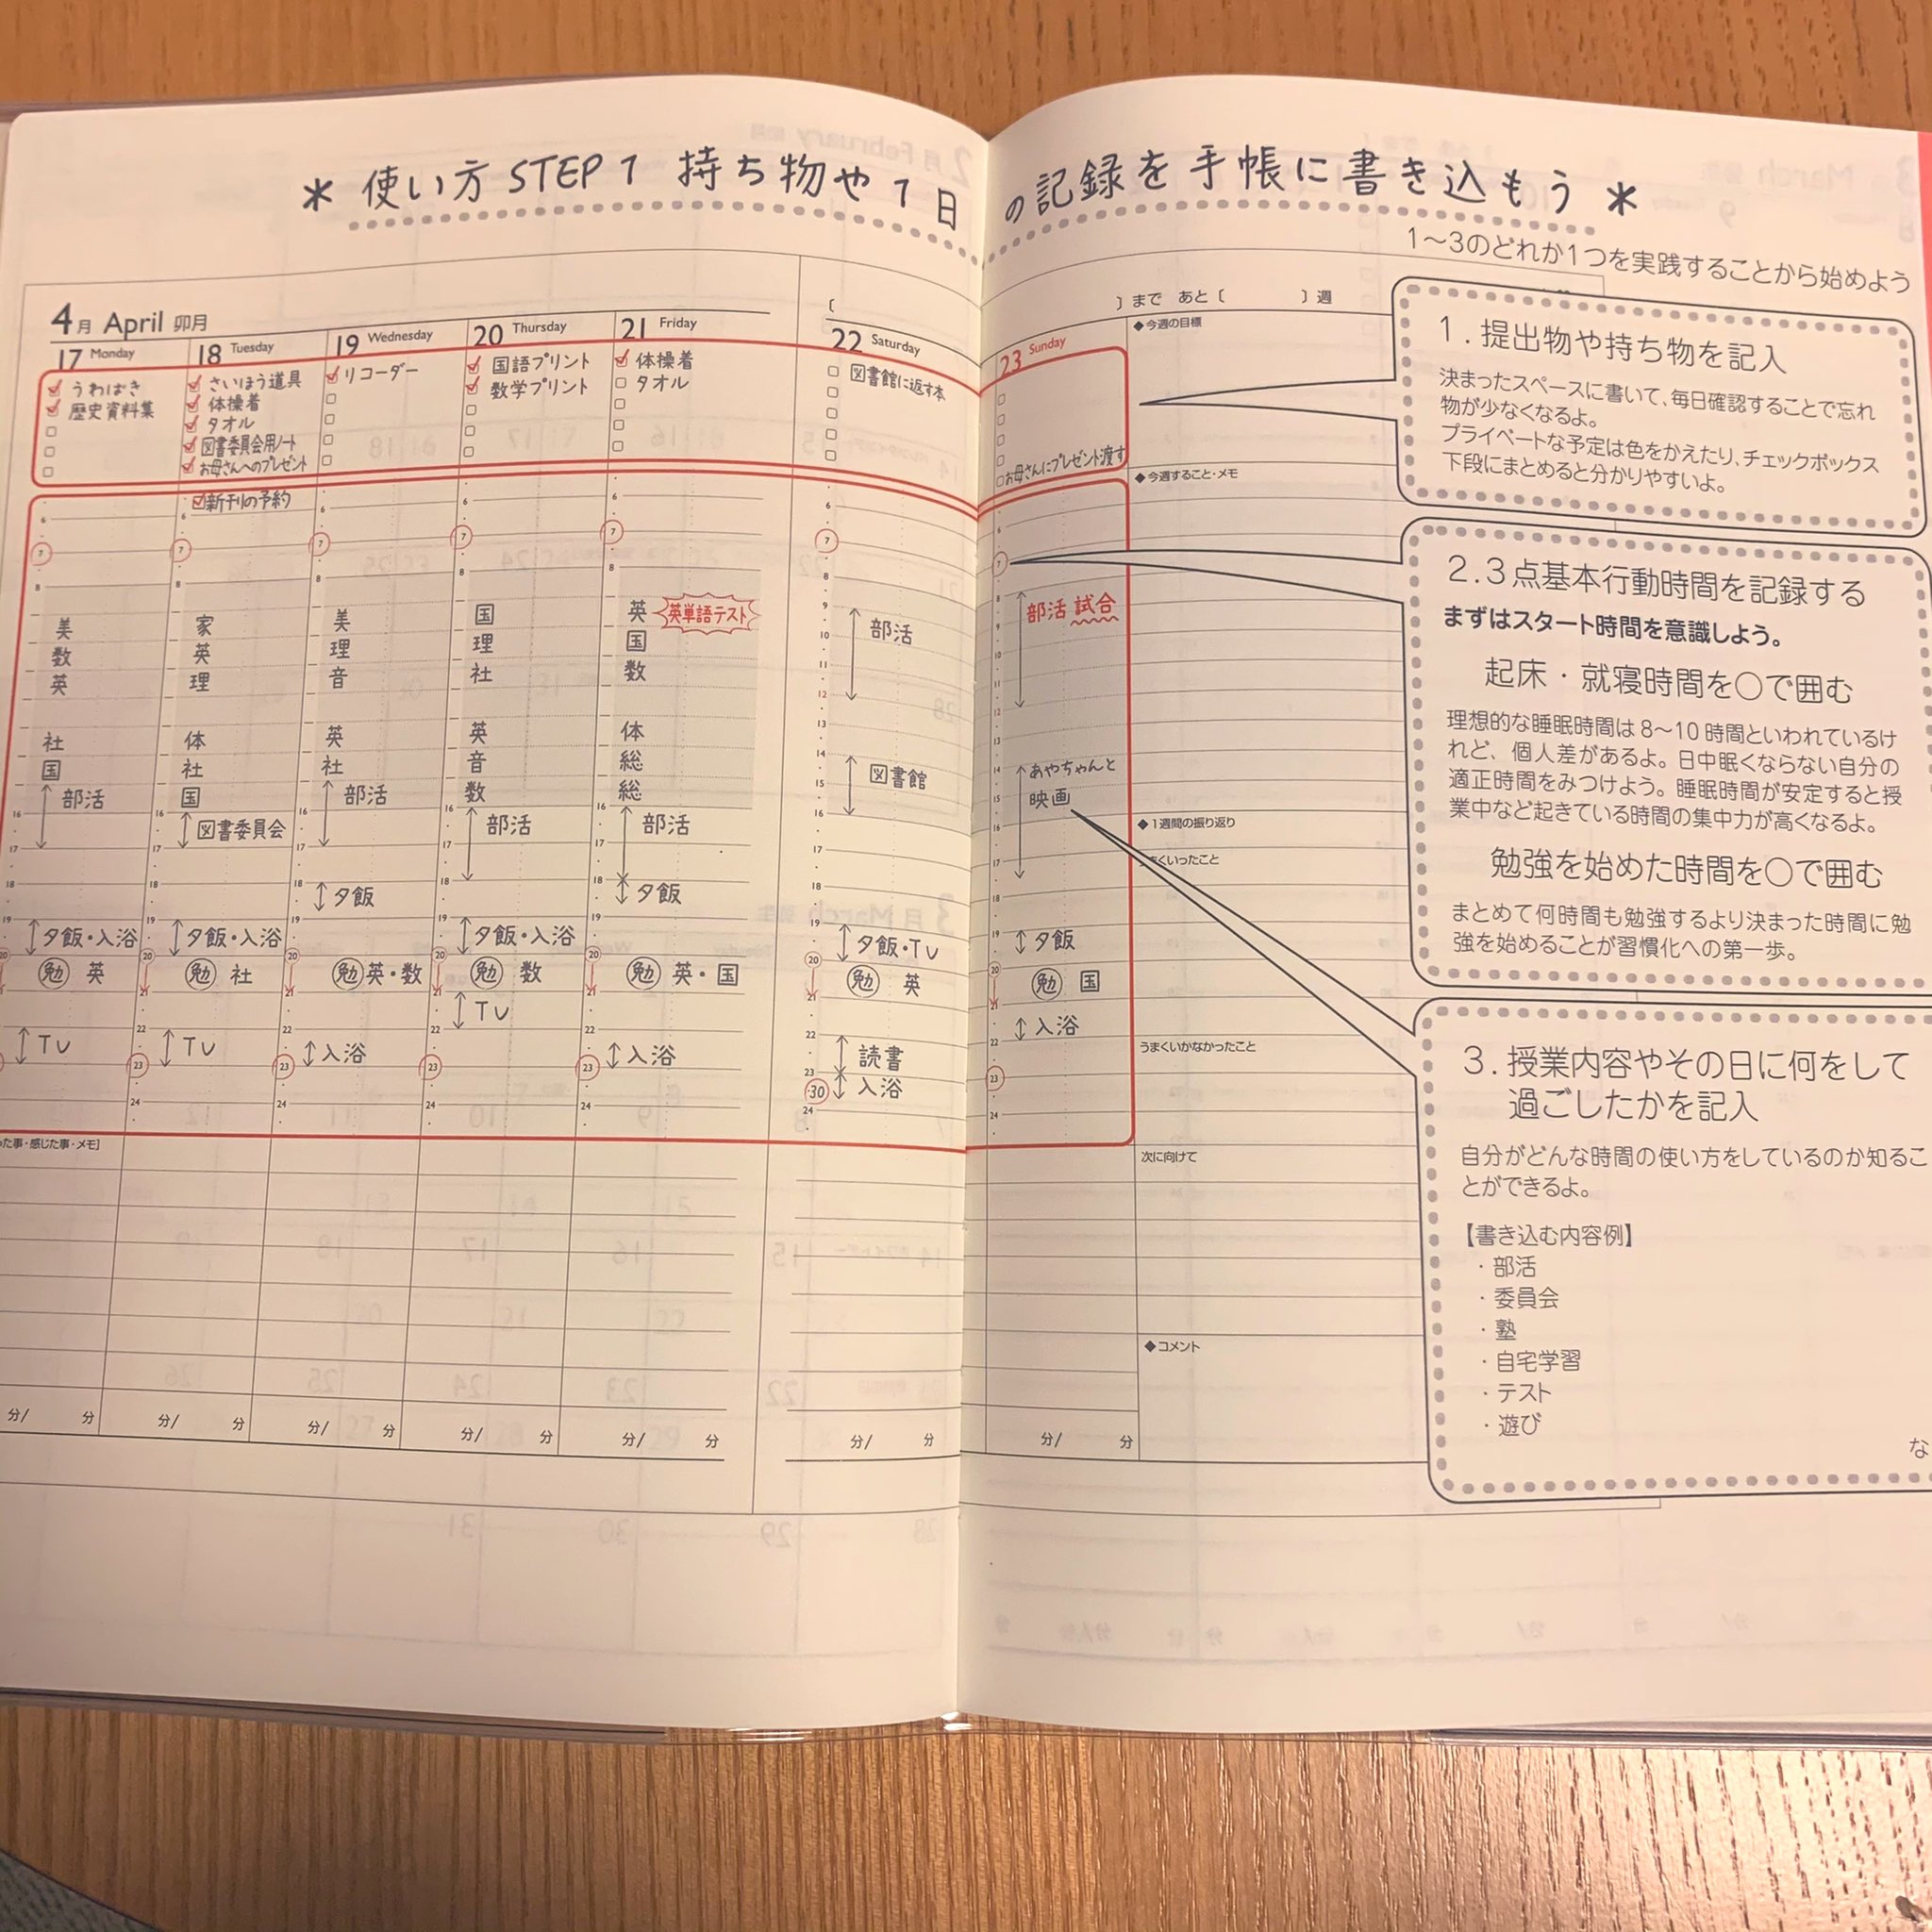 ＊ 使い方 STEP 1 持ち物や1日の記録を手帳に書き込もう ＊
1〜3のどれか1つを実践することから始めよう
4月 April 卯月
〔 〕まで あと〔 〕週
17 Monday
うわばき
歴史資料集
美
数
英
社
国
部活
夕飯・入浴
勉 英
TV
18 Tuesday
さいほう道具
体操着
タオル
図書委員会用ノート
お母さんへのプレゼント
新刊の予約
6
7
8
家
英
理
体
社
国
16
図書委員会
17
18
19
夕飯・入浴
20
勉 社
21
22
TV
23
24
19 Wednesday
リコーダー
6
7
8
美
理
音
英
社
部活
16
17
18
夕飯
19
20
勉 英・数
21
22
入浴
23
24
20 Thursday
国語プリント
数学プリント
6
7
8
国
理
社
英
音
数
16
部活
17
18
19
夕飯・入浴
20
勉 数
21
TV
22
23
24
21 Friday
体操着
タオル
6
7
8
英 英単語テスト
国
数
体
総
総
16
部活
17
18
夕飯
19
20
勉 英・国
21
22
入浴
23
24
22 Saturday
図書館に返す本
6
7
8
9
部活
10
11
12
13
14
図書館
15
16
17
18
19
夕飯・TV
20
勉 英
21
22
読書
23
30 入浴
24
23 Sunday
お母さんにプレゼント渡す
6
7
8
部活 試合
9
10
11
12
13
14
あやちゃんと
15
映画
16
17
18
19
夕飯
20
勉 国
21
入浴
22
23
24
った事・感じた事・メモ]
分/ 分
分/ 分
分/ 分
分/ 分
分/ 分
分/ 分
分/ 分
◆今週の目標
◆今週すること・メモ
◆1週間の振り返り
まくいったこと
うまくいかなかったこと
次に向けて
◆コメント
1．提出物や持ち物を記入
決まったスペースに書いて、毎日確認することで忘れ
物が少なくなるよ。
プライベートな予定は色をかえたり、チェックボックス
下段にまとめると分かりやすいよ。
2．3点基本行動時間を記録する
まずはスタート時間を意識しよう。
起床・就寝時間を○で囲む
理想的な睡眠時間は8〜10時間といわれているけ
れど、個人差があるよ。日中眠くならない自分の
適正時間をみつけよう。睡眠時間が安定すると授
業中など起きている時間の集中力が高くなるよ。
勉強を始めた時間を○で囲む
まとめて何時間も勉強するより決まった時間に勉
強を始めることが習慣化への第一歩。
3．授業内容やその日に何をして
過ごしたかを記入
自分がどんな時間の使い方をしているのか知るこ
とができるよ。
【書き込む内容例】
・部活
・委員会
・塾
・自宅学習
・テスト
・遊び
な